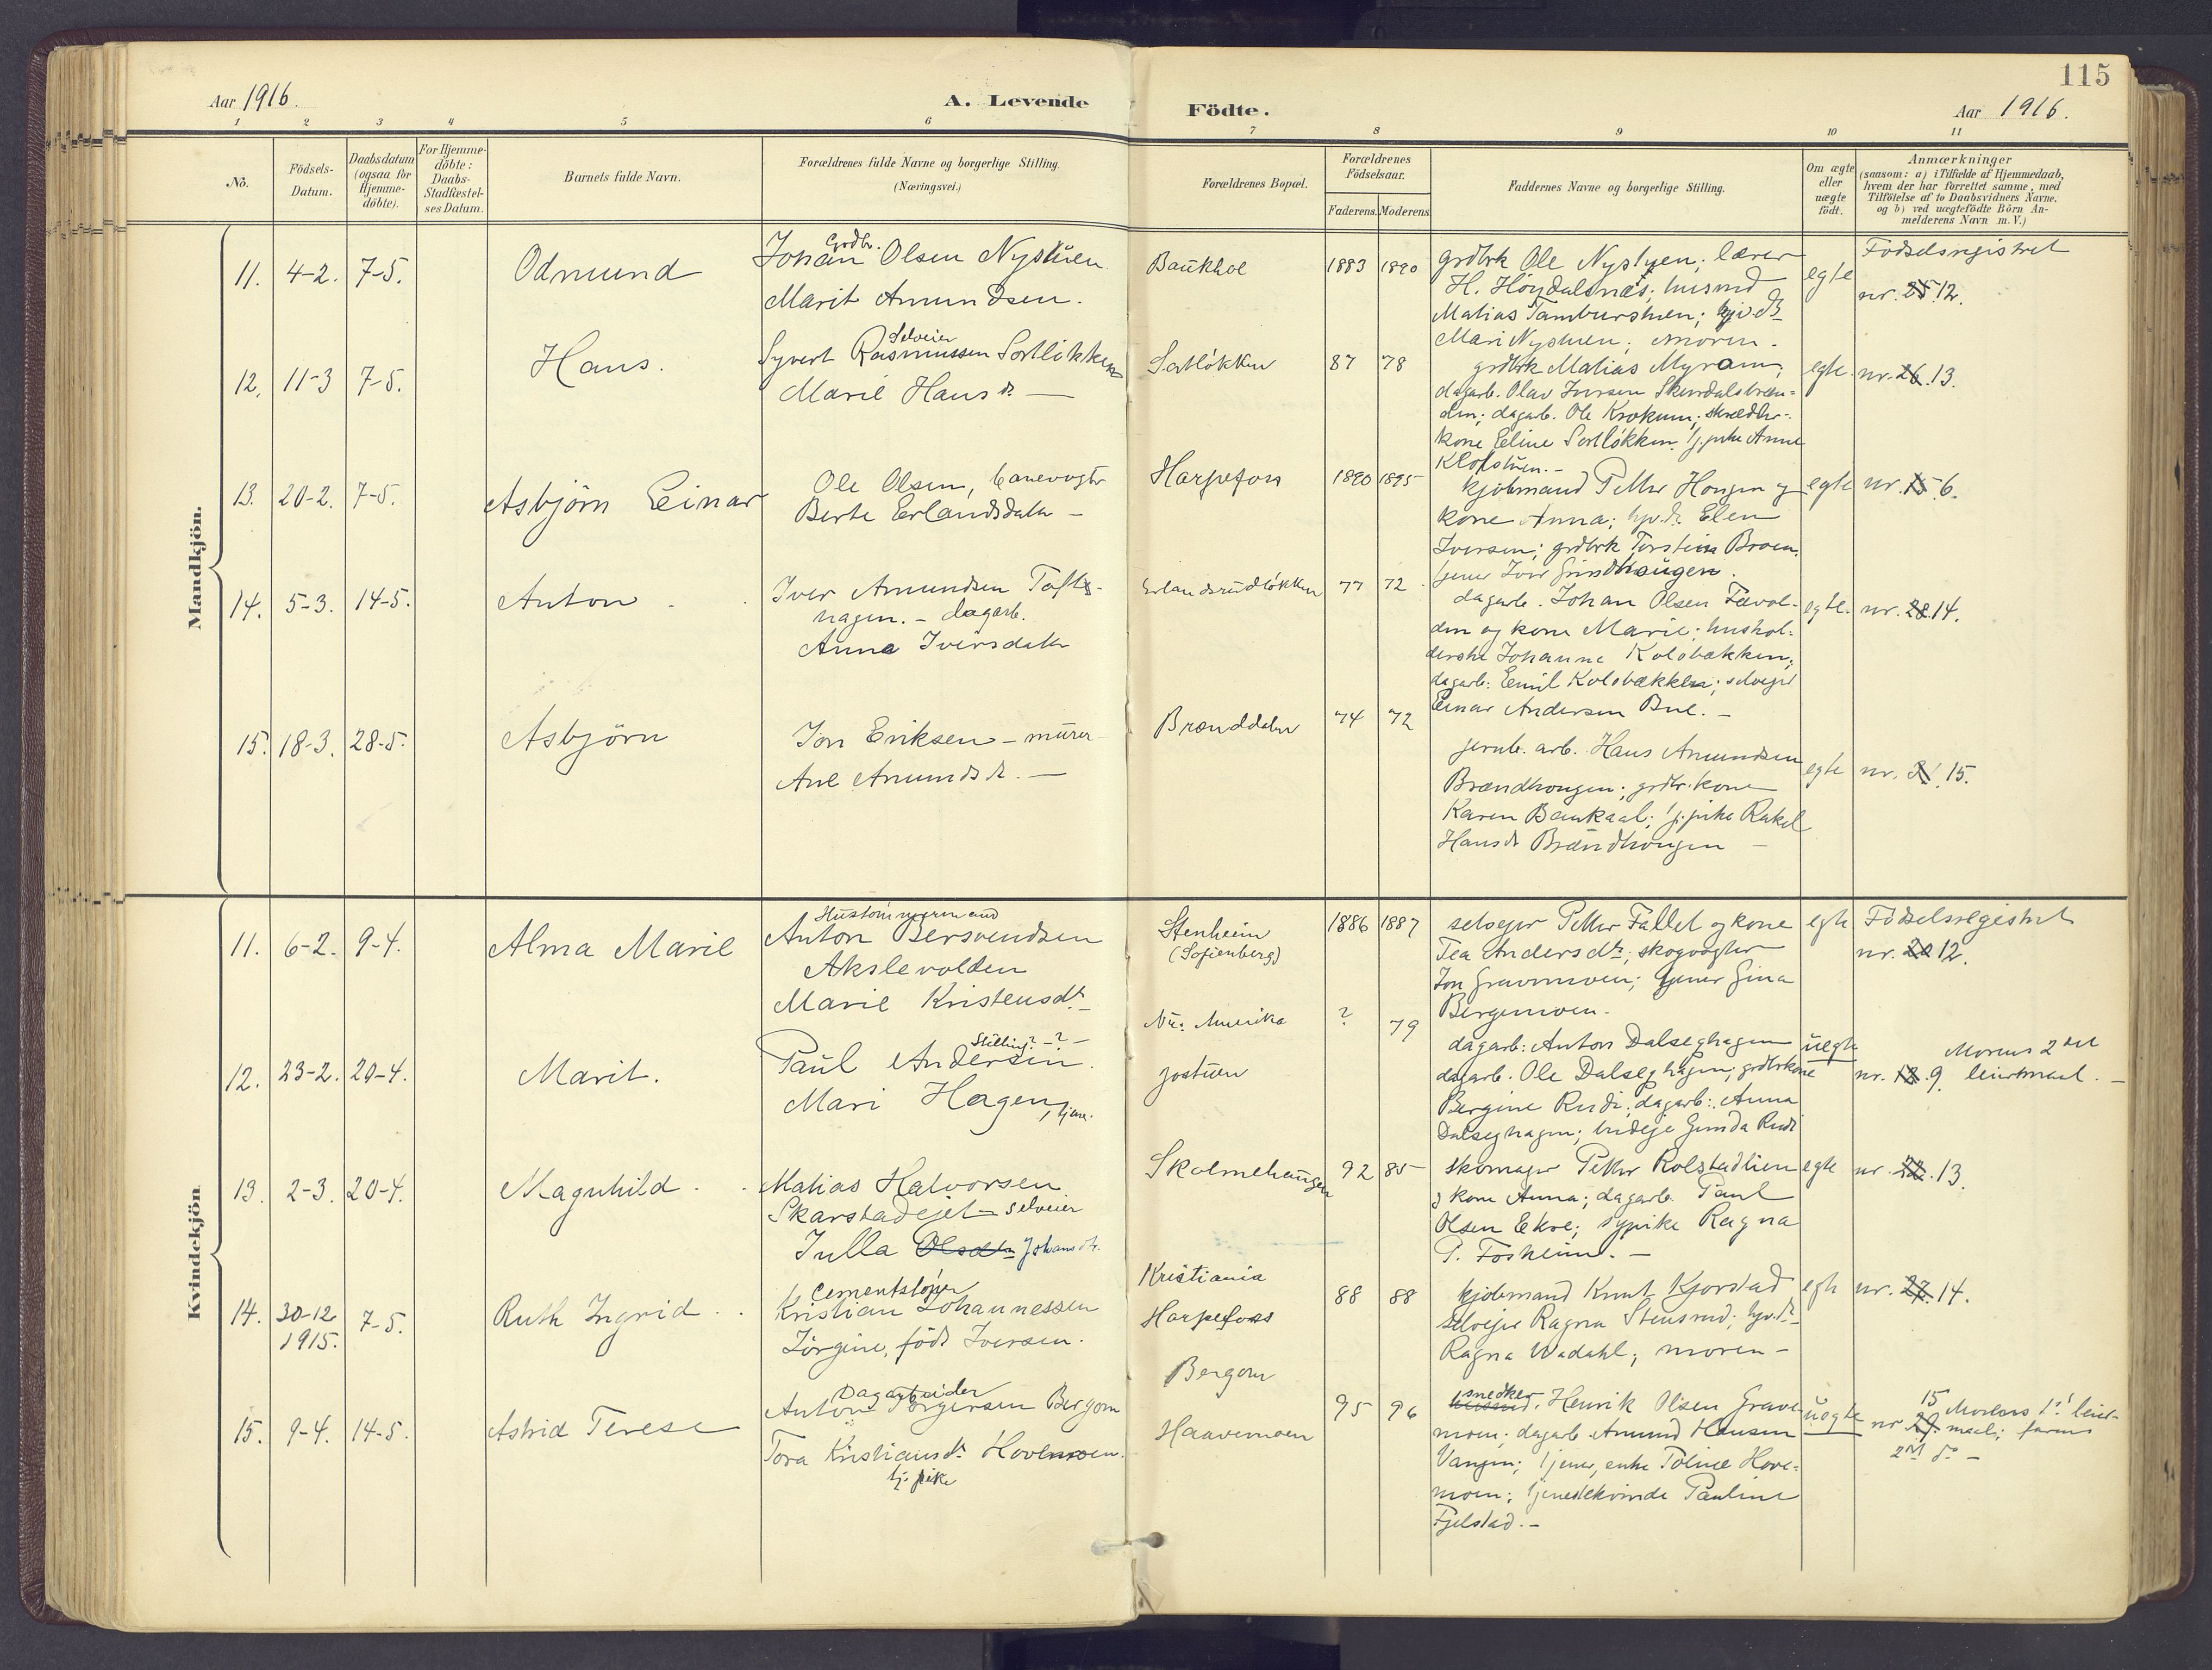 115
Aar 1916.
A. Levende Födte.
Aar 1916.
1 2 3 4 5 6 7 8 9 10 11
No.
Födsels-
Datum.
Daabsdatum
(ogsaa for
Hjemme-
döbte).
For Hjemme-
döbte:
Daabs-
Stadfæstel-
ses Datum.
Barnets fulde Navn.
Forældrenes fulde Navne og borgerlige Stilling.
(Næringsvei.)
Forældrenes Bopæl.
Forældrenes
Födselsaar.
Faderens. Moderens.
Faddernes Navne og borgerlige Stilling.
Om ægte
eller
uægte
födt.
Anmærkninger
(saasom: a) i Tilfælde af Hjemmedaab,
hvem der har forrettet samme, med
Tilföielse af to Daabsvidners Navne,
og b) ved uægtefödte Börn An-
melderens Navn m. V.)
Mandkjön.
11. 4-2. 7-5.
Odmund
Grdbr.
Johan Olsen Nystuen
Marit Amundsen.
Baukhol
1883 1890
grdbrk Ole Nystuen; lærer
H. Höydalsnæs; husmd
Matias Tamburstuen;
Mari Nystuen; moren.
egte
Födselsregistret
nr. 25. 12.
12. 11-3 7-5.
Haus.
Selveier
Syvert Rasmussen Sortløkken
Marie Hansd. —
Sortløkken
87 78
grdbrk Matias Myrom;
dagarb. Olav Iversen Skurdalsbræn-
den; dagarb. Ole Krokum;
kone Eeline Sortløkken. tj.pike Anne
Klofstuen. -
egte.
nr. 26. 13.
13. 20-2. 7-5.
Asbjörn Einar
Ole Olsen, banevogter
Berte Erlandsdatter -
Harpefoss
1890 1895
kjöbmand Petter Hougen og
kone Anna; Elen
Iversen; grdbrk Torstein Broen;
tjener Iver Grindhaugen.
egte
nr. 15. 6.
14. 5-3. 14-5.
Anton
Iver Amundsen Tofte-
hagen. - dagarb.
Anna Iversdatter
Erlandsrudløkken
77 72
dagarb. Johan Olsen Fævol-
den og kone Marie; hushol-
derske Johanne Kolobækken;
dagarb. Emil Kolobækken; selveger
Einar Andersen Bue. -
egte.
nr. 28. 14.
15. 18-3. 28-5.
Asbjörn
Jon Eriksen - murer
Ane Amundsdt. —
Brænddalen
74 72
jernb. arb. Hans Amundsen
Brændhougen; grdbr.kone
Karen Baukaal; tj.pike Rakel
Hansdt Brændhougen -
egte
nr. 31. 15.
Kvindekjön
11. 6-2. 9-4.
Alma Marie
Hustömmermand
Anton Bersvendsen
Akslevolden
Marie Kristensdt. -
Stenheim
(Sofienberg)
1886 1887
selveger Petter Fallet og kone
Tea Andersdt; skogvogter
Jon Gravermoen; tjener Gina
Bergemoen.
egte
Födselsregistret
nr. 20 12.
12. 23-2. 20-4.
Marit.
Stilling? - ? -
Paul Andersen.
Mari Hagen, tjene.
Nu: Amerika
Jostuen
? 79
dagarb: Anton Dalseghagen
dagarb. Ole Dalseghagen; grdbrkone
Bergine Rudi; dagarb: Anna
Dalseghagen; budeje Gunda Rudi
uegte
nr. 18. 9.
Morens 2det
leiermaal. -
13. 2-3. 20-4.
Magnhild
Matias Halvorsen
Skarstadejet - selveier
Julla Olsdt Johansdt.
Skolmehaugen
92 85
skomager Petter Kolstadlien
& kone Anna; dagarb. Paul
Olsen Ekre; sypike Ragna
P. Fosheim. -
egte
nr. 22. 13.
14. 30-12 1915. 7-5.
Ruth Ingrid
Cementstöper
Kristian Johannessen
Jörgine, föd Iversen.
Kristiania
Harpefoss
88 88
kjöbmand Knut Kjorstad
selveger Ragna Stensrud;
Ragna Wadahl; moren -
egte
nr. 27. 14.
15. 9-4. 14-5.
Astrid Terese
Dagarbeider
Anton Törgersen Bergom
Tora Kristiansdt. Hovemoen.
tj. pike
Bergom
Haavemoen
95 96
snedker
husmd. Henrik Olsen Grave-
moen; dagarb Amund Hansen
Vangen; tjener, enke Toline Hove-
moen; tjenestekvinde Pauline
Fjelstad. -
uegte
nr. 29. 15
Morens 1ste leier-
maal; farens
2det do -